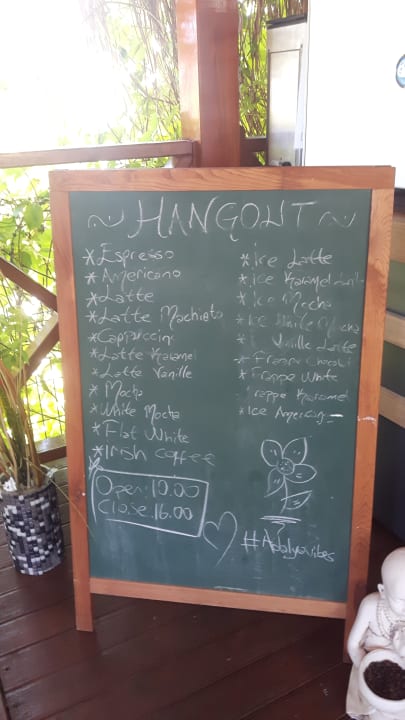 ~ HANGOUT ~
* Espresso
* Americano
* Latte
* Latte Machiato
* Cappuccino
* Latte Karamel
* Latte Vanille
* Mocha
* White Mocta
* Flat White
* Irish coffee
Open: 10.00
Close: 16.00
* Ice Latte
* Ice Karamel
* Ice Mocha
* Ice White Mocha
Vanille Latte
* Frappe Chocolat
* Frappe White
Frappe Karamel
* Ice Americano
#Adalyavibes